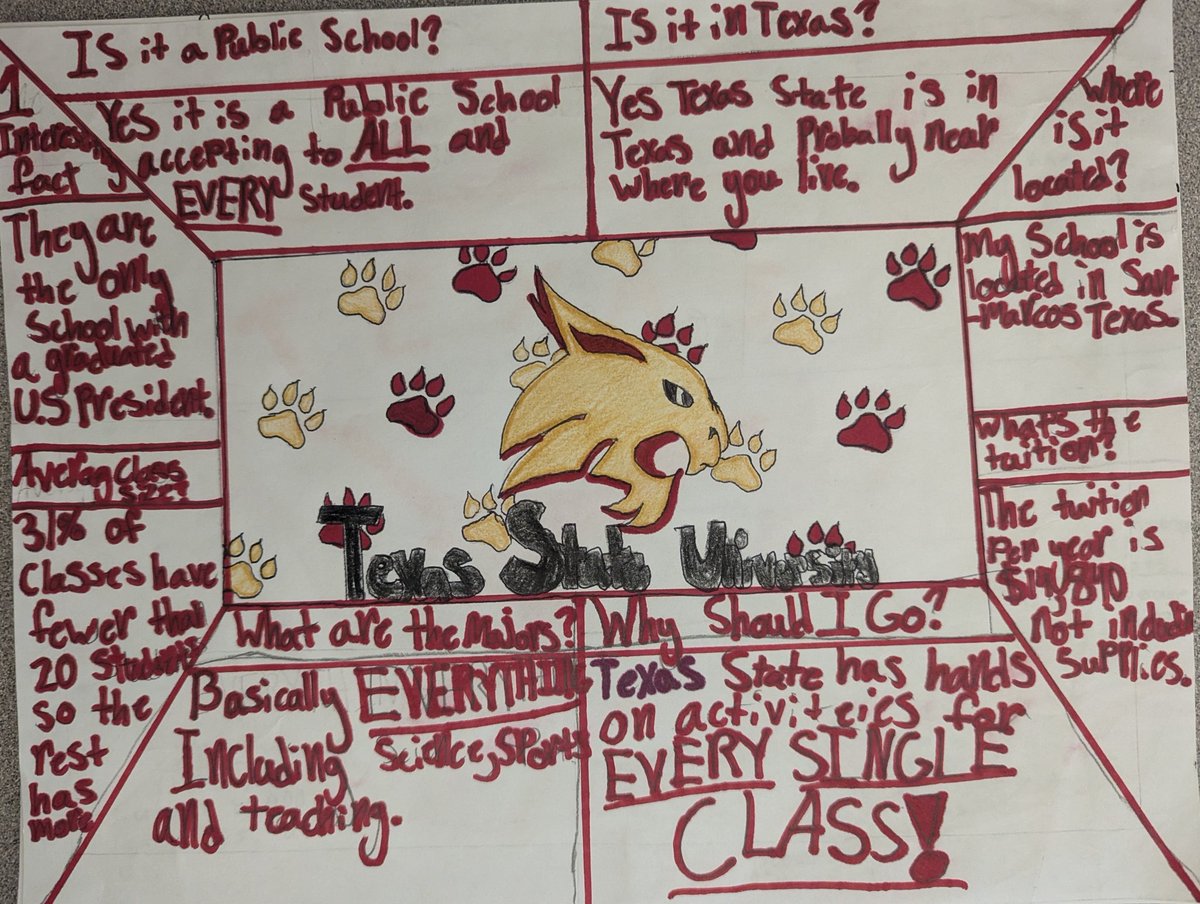 IS it a Public School?
Yes it is a Public School
accepting to ALL and
EVERY student.
Is it in Texas?
Yes Texas State is in
Texas and Probally near
where you live.
1
Interesting
fact
They are
the only
School with
a graduated
U.S President.
Averag Class
size?
31% of
Classes have
fewer than
20 Students
so the
rest
has
more
Where
is it
located?
My School is
located in San
-Marcos Texas.
What's the
taition?
The tuition
Per year is
$19,840
not
Supplies.
Texas State University
What are the Majors?
Basically EVERYTHING
Including Science, Sports
and teaching.
Why Should I Go?
Texas State has hands
on activiteies for
EVERY SINGLE
CLASS!